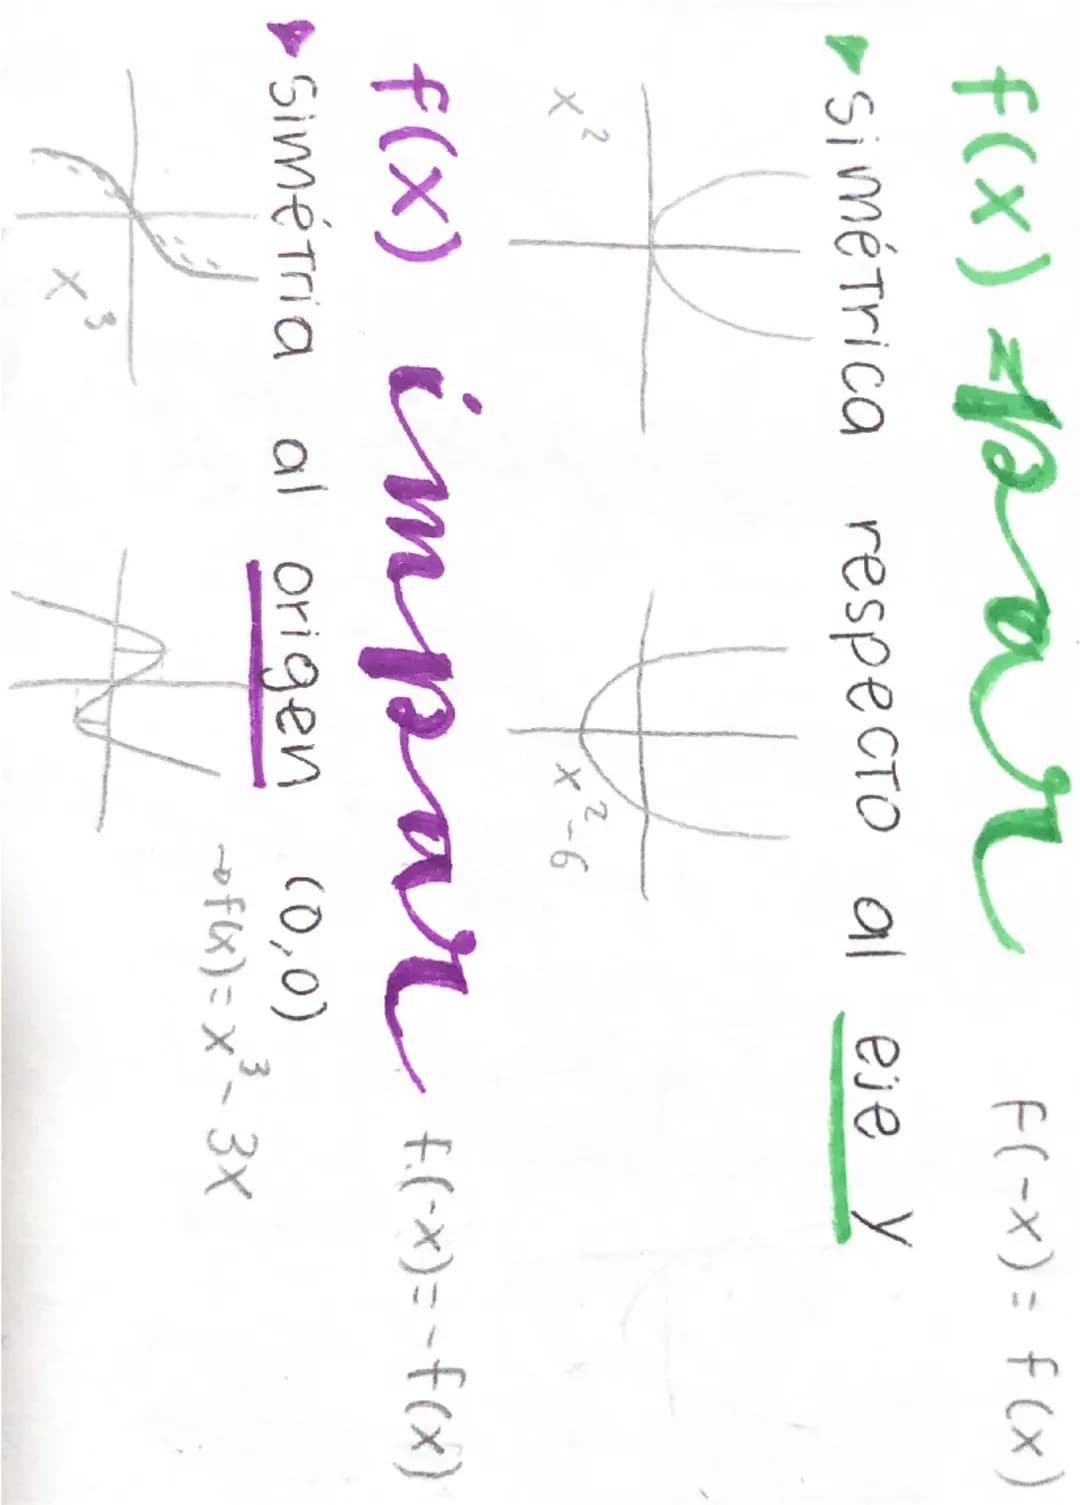 f(x) = par F(-x) = f(x)
simétrica respecto al eje y
x² x²-6
f(x) impar f(-x) = -f(x)
simétria al origen (0,0)
→ f(x) = x³ - 3x
x³